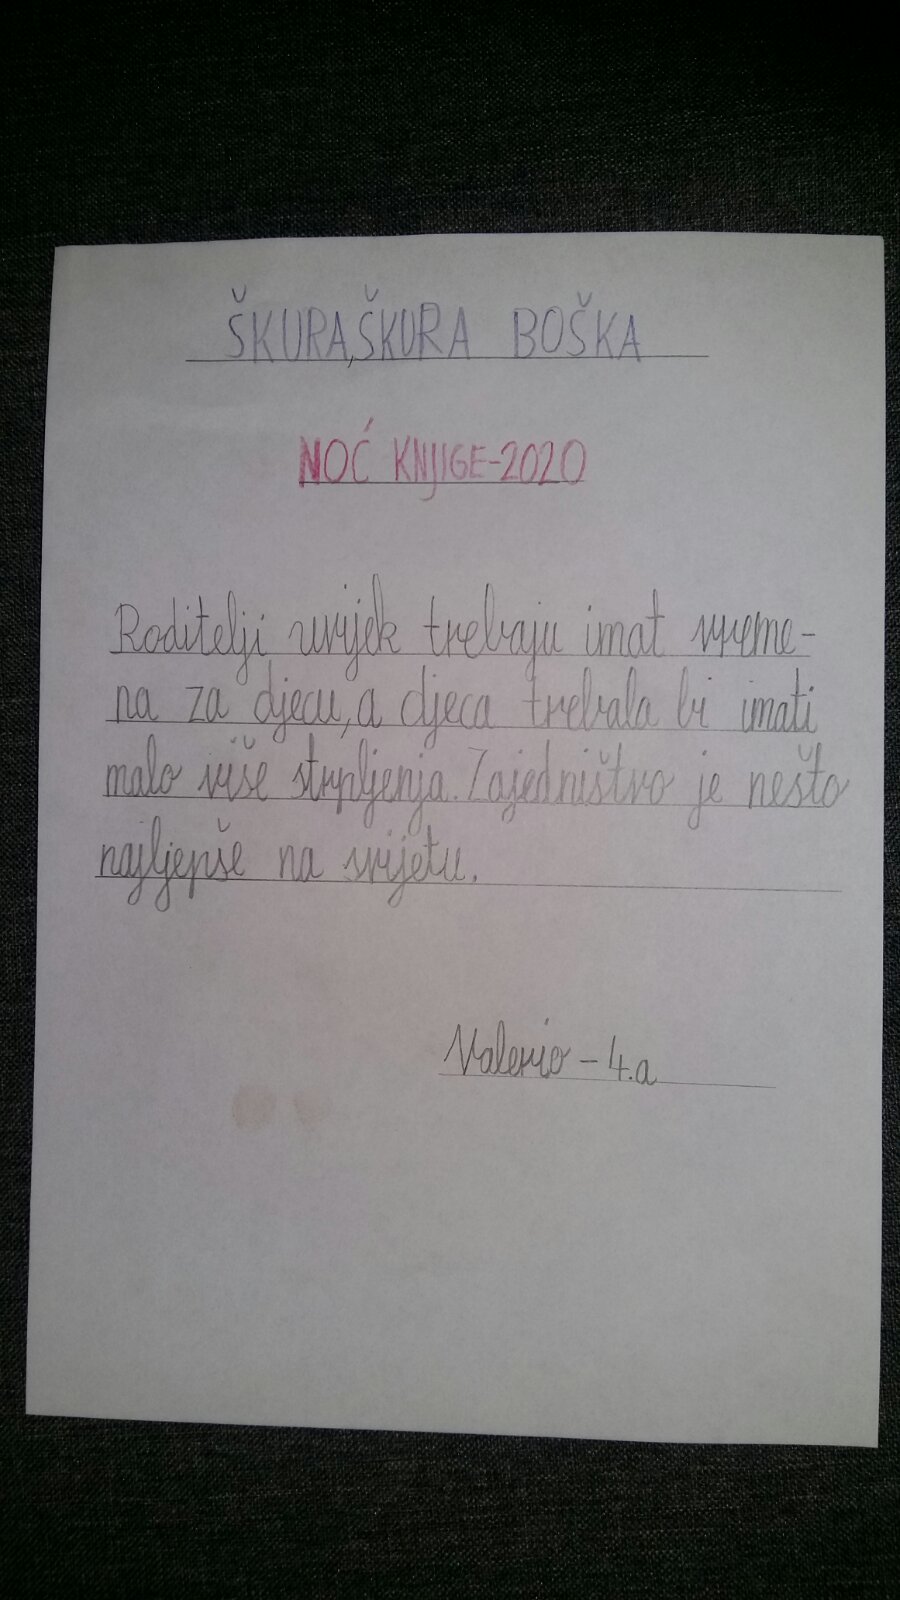 ŠKURA,ŠKURA BOŠKA
NOĆ KNJIGE-2020
Roditelji uvijek trebaju imat vreme-
na za djecu, a djeca trebala bi imati
malo više strpljenja. Zajedništvo je nešto
najljepše na svijetu.
Valerio - 4.a